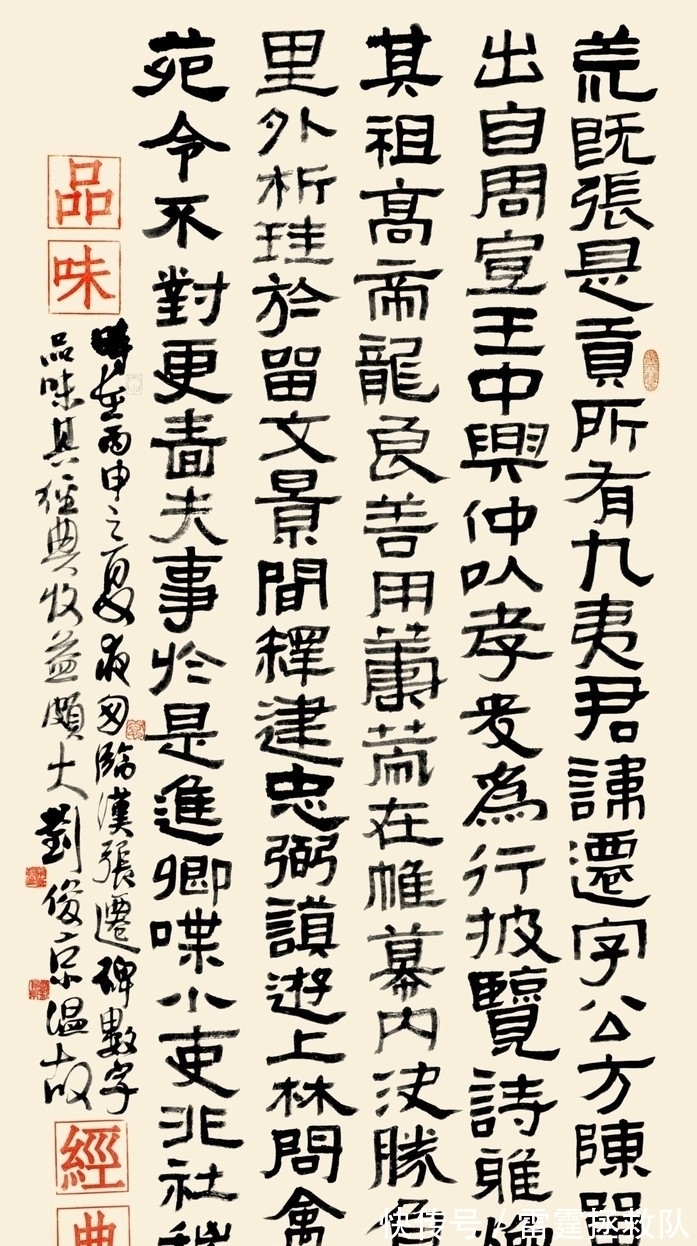 荒既張是貢所有九夷君諱遷字公方陳留
出自周宣王中興仲以孝友為行披覽詩雅煥
其祖高帝龍良善用籌策在帷幕内決勝負
里外析珪於留文景間釋建忠弼謨遊上林問禽
苑令不對更嗇夫事於是進卿喋小吏非社稷
時在丙申之夏夜匆臨漢張遷碑數字
品味其經典收益頗大劉俊京温故
品味
經典
快传号/雷霆拯救队